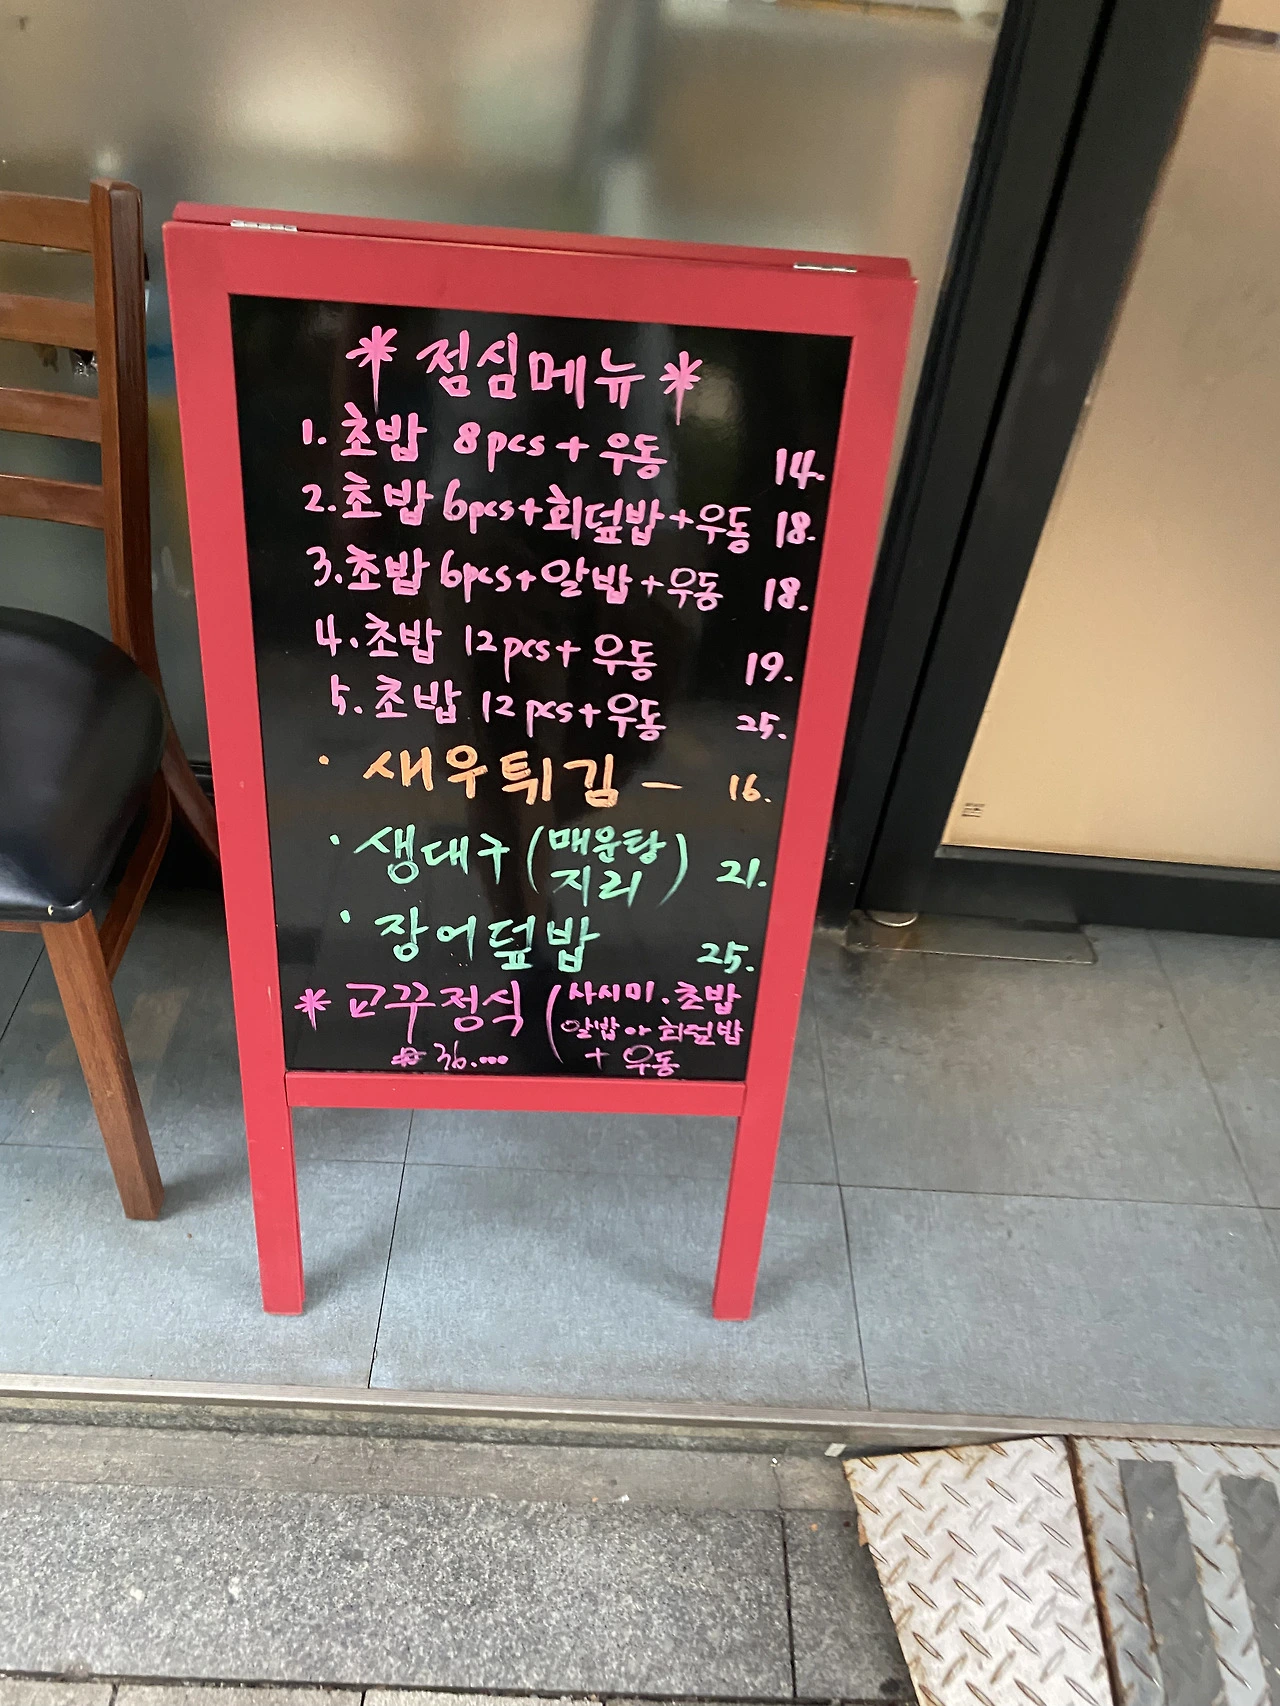 * 점심메뉴 *
1. 초밥 8pcs + 우동 14.
2. 초밥 6pcs + 회덮밥 + 우동 18.
3. 초밥 6pcs + 알밥 + 우동 18.
4. 초밥 12pcs + 우동 19.
5. 초밥 12pcs + 우동 25.
· 새우튀김 - 16.
· 생대구 (매운탕 지리) 21.
· 장어덮밥 25.
* 교꾸정식 (사시미. 초밥
알밥 or 회덮밥
36.000 + 우동